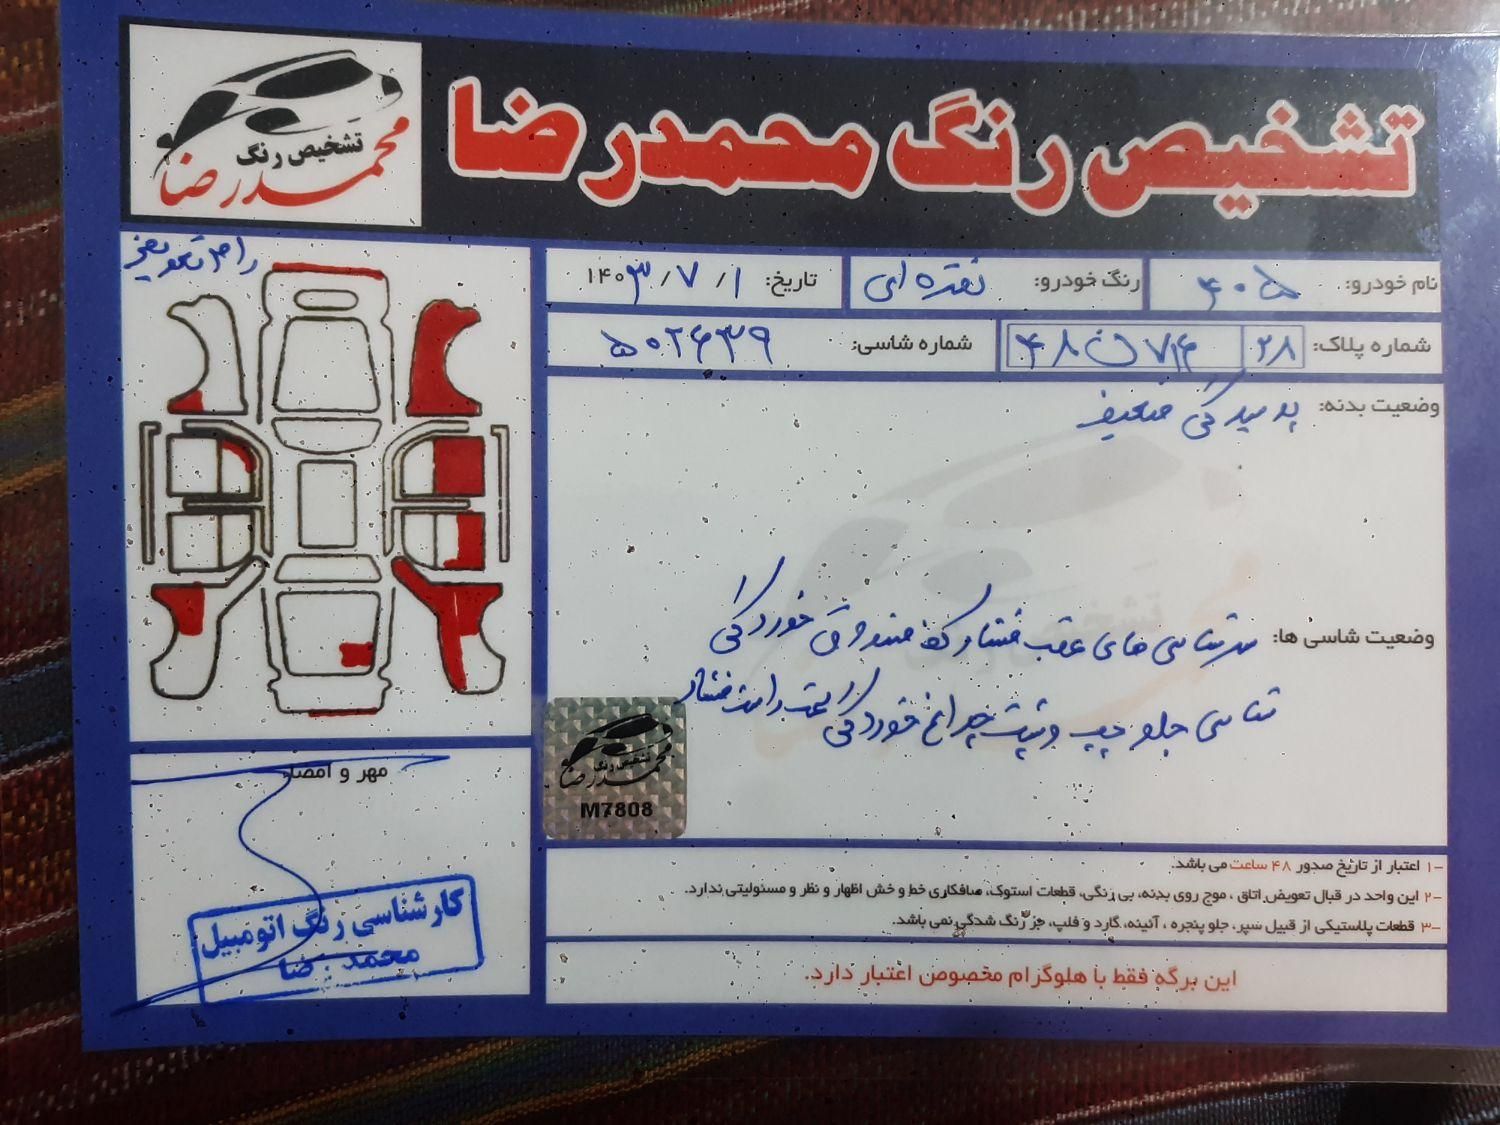 تشخیص رنگ محمدرضا
تشخیص رنگ
محمدرضا
نام خودرو: ۴۰۵
رنگ خودرو: نقره ای
تاریخ: ۱۴۰۳/۷/۱
شماره پلاک: ۲۸
۴۸ ن ۷۴
شماره شاسی: ۵۰۲۶۳۹
وضعیت بدنه: پوسیدگی ضعیف
وضعیت شاسی ها: سرشاسی های عقب فشار کف صندوق خوردگی
شاسی جلو چپ و پشت چراغ خوردگی سمت راست فشار
تشخیص رنگ
محمدرضا
M7808
مهر و امضاء
کارشناسی رنگ اتومبیل
محمدرضا
۱- اعتبار از تاریخ صدور ۴۸ ساعت می باشد.
۲- این واحد در قبال تعویض اتاق ، موج روی بدنه، بی رنگی، قطعات استوک، صافکاری خط و خش اظهار و نظر و مسئولیتی ندارد.
۳- قطعات پلاستیکی از قبیل سپر، جلو پنجره ، آئینه، گارد و فلپ، جز رنگ شدگی نمی باشد.
این برگه فقط با هلوگرام مخصوص اعتبار دارد.